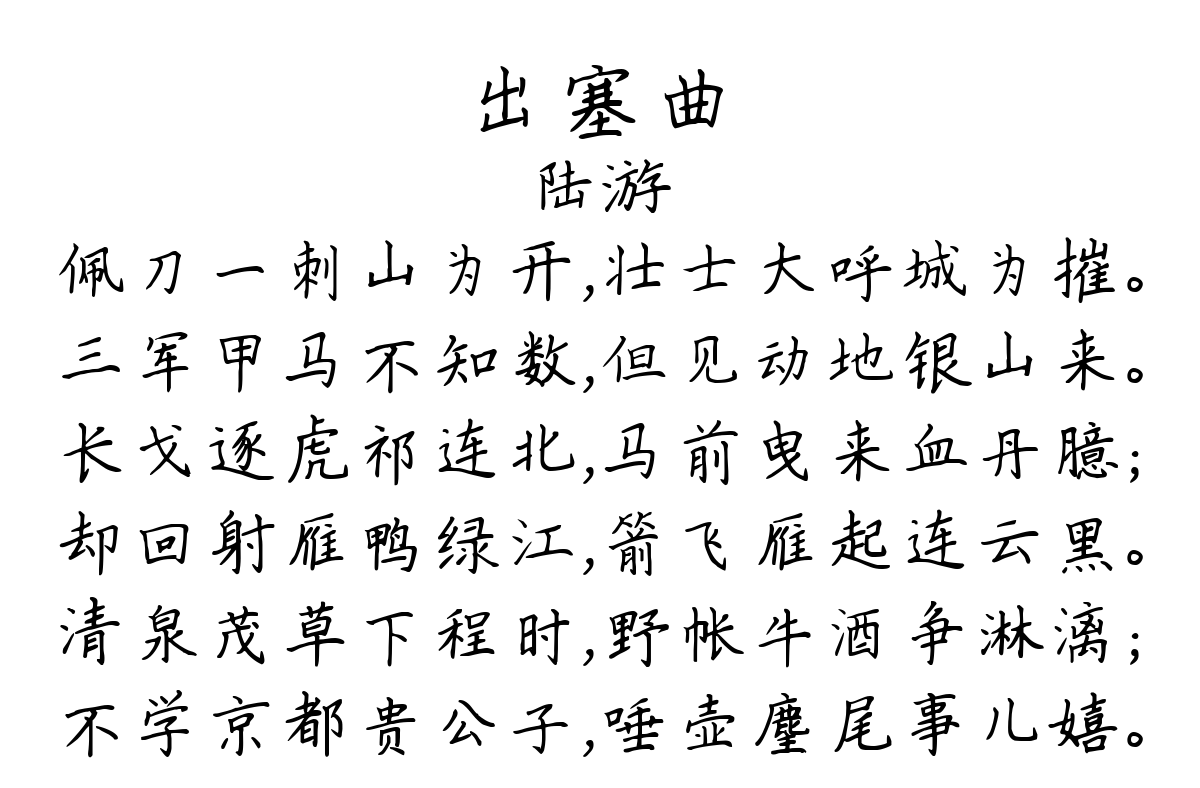 出塞曲
陆游
佩刀一刺山为开,壮士大呼城为摧。
三军甲马不知数,但见动地银山来。
长戈逐虎祁连北,马前曳来血丹臆;
却回射雁鸭绿江,箭飞雁起连云黑。
清泉茂草下程时,野帐牛酒争淋漓;
不学京都贵公子,唾壶麈尾事儿嬉。